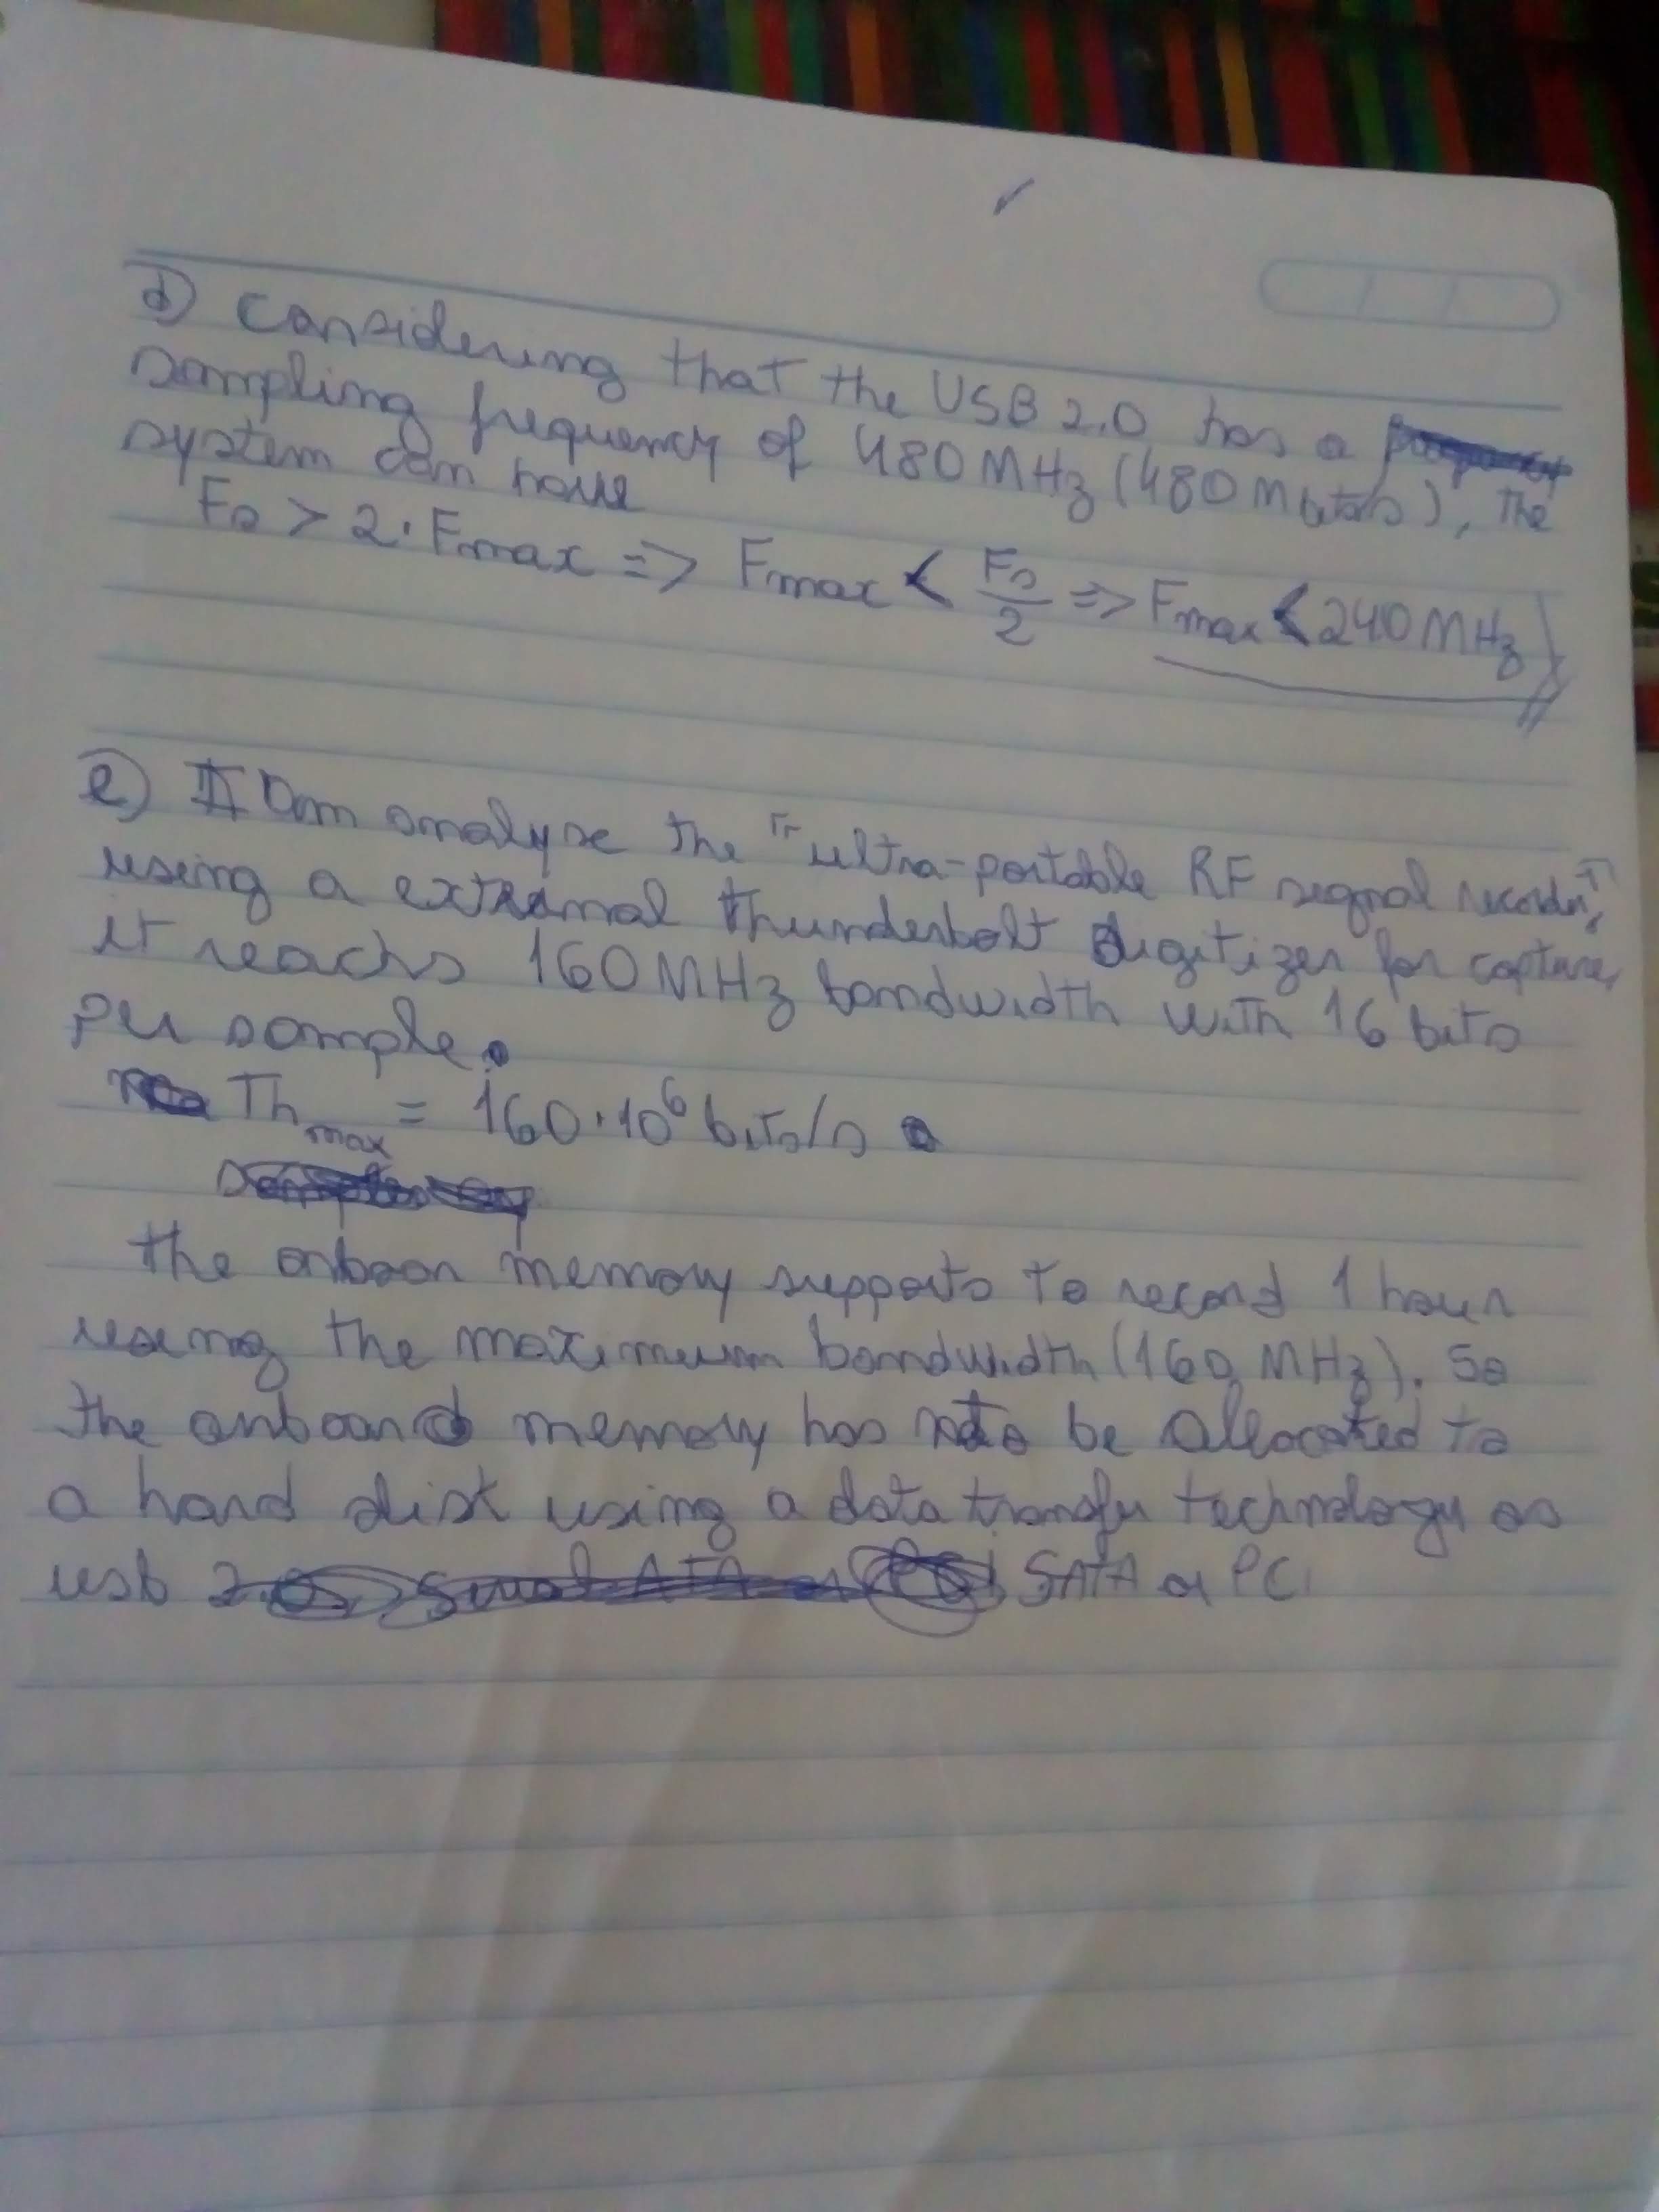 d) Considering that the USB 2.0 has a
sampling frequency of 480 MHz (480 Mbits/s), The
system can have
Fs > 2 · Fmax => Fmax < Fs/2 => Fmax < 240 MHz
e) I am analyse the "ultra-portable RF signal recorder",
using a external thunderbolt digitizer for capture,
it reachs 160 MHz bandwidth with 16 bits
per sample.
Thmax = 160·10⁶ bits/s
The onboar memory supports to record 1 hour
using the maximum bandwidth (160 MHz). So
the onboard memory has to be allocated to
a hard disk using a data transfer technology as
usb SATA or PCI